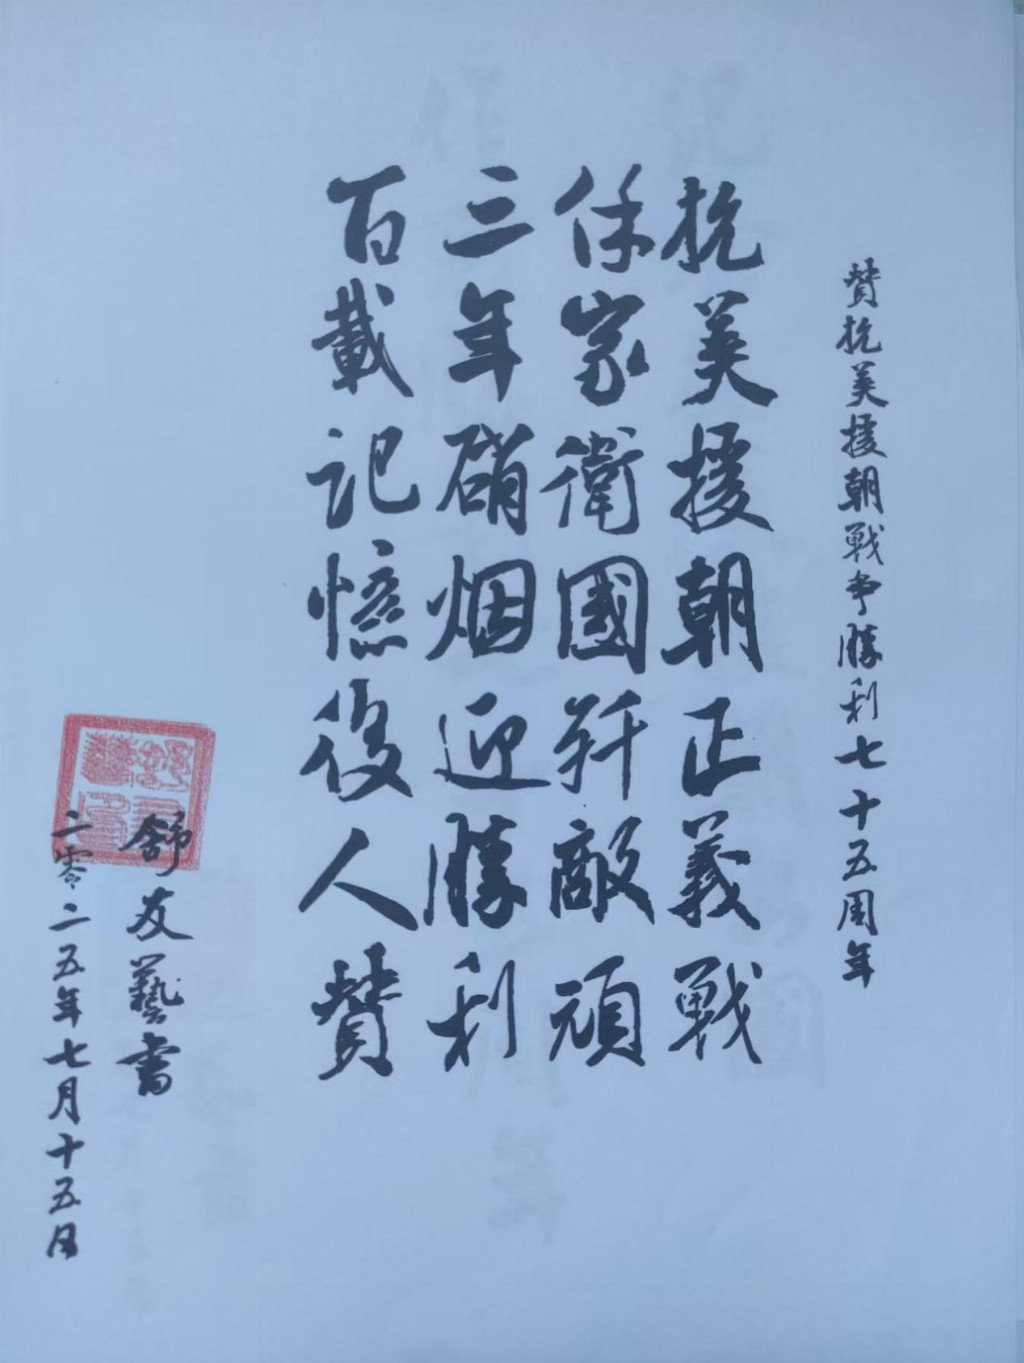 贊抗美援朝戰争勝利七十五周年
抗美援朝正義戰
保家衛國歼敵頑
三年硝烟迎勝利
百載記憶後人贊
舒友藝書
二零二五年七月十五日